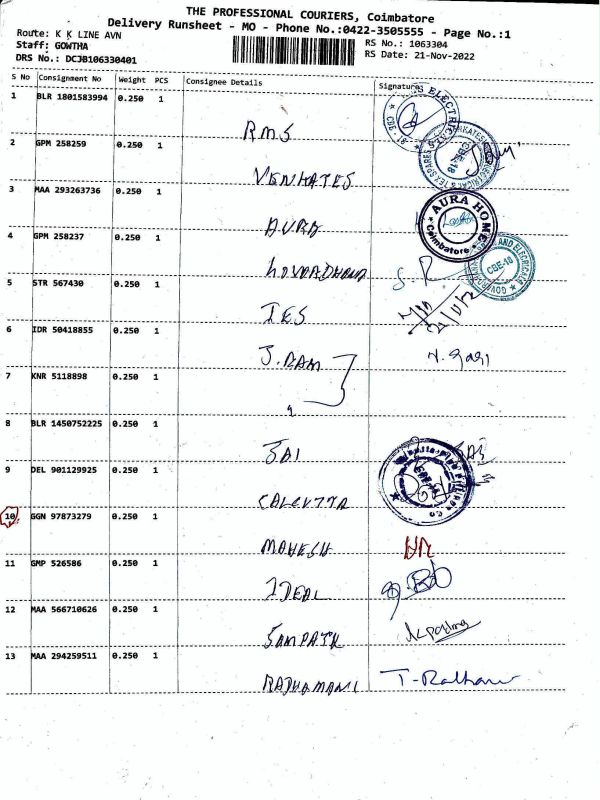 THE PROFESSIONAL COURIERS, Coimbatore
Delivery Runsheet - MO - Phone No.:0422-3505555 - Page No.:1
Route: K K LINE AVN
Staff: GOWTHA
DRS No.: DCJB106330401
RS No.: 1063304
RS Date: 21-Nov-2022
S No Consignment No Weight PCS Consignee Details Signature
1 BLR 1801583994 0.250 1
RMS
2 GPM 258259 0.250 1
VENKATES
3 MAA 293263736 0.250 1
AURA
AURA HOME
Coimbatore
4 GPM 258237 0.250 1
CBE-18
5 STR 567430 0.250 1
IES
6 IDR 50418855 0.250 1
J. RAM
7 KNR 5118898 0.250 1
8 BLR 1450752225 0.250 1
JAI
9 DEL 901129925 0.250 1
CALCUTTA
10 GGN 97873279 0.250 1
MAHESH
11 GMP 526586 0.250 1
IDEAL
12 MAA 566710626 0.250 1
SAMPATH
13 MAA 294259511 0.250 1
RADHAMANI